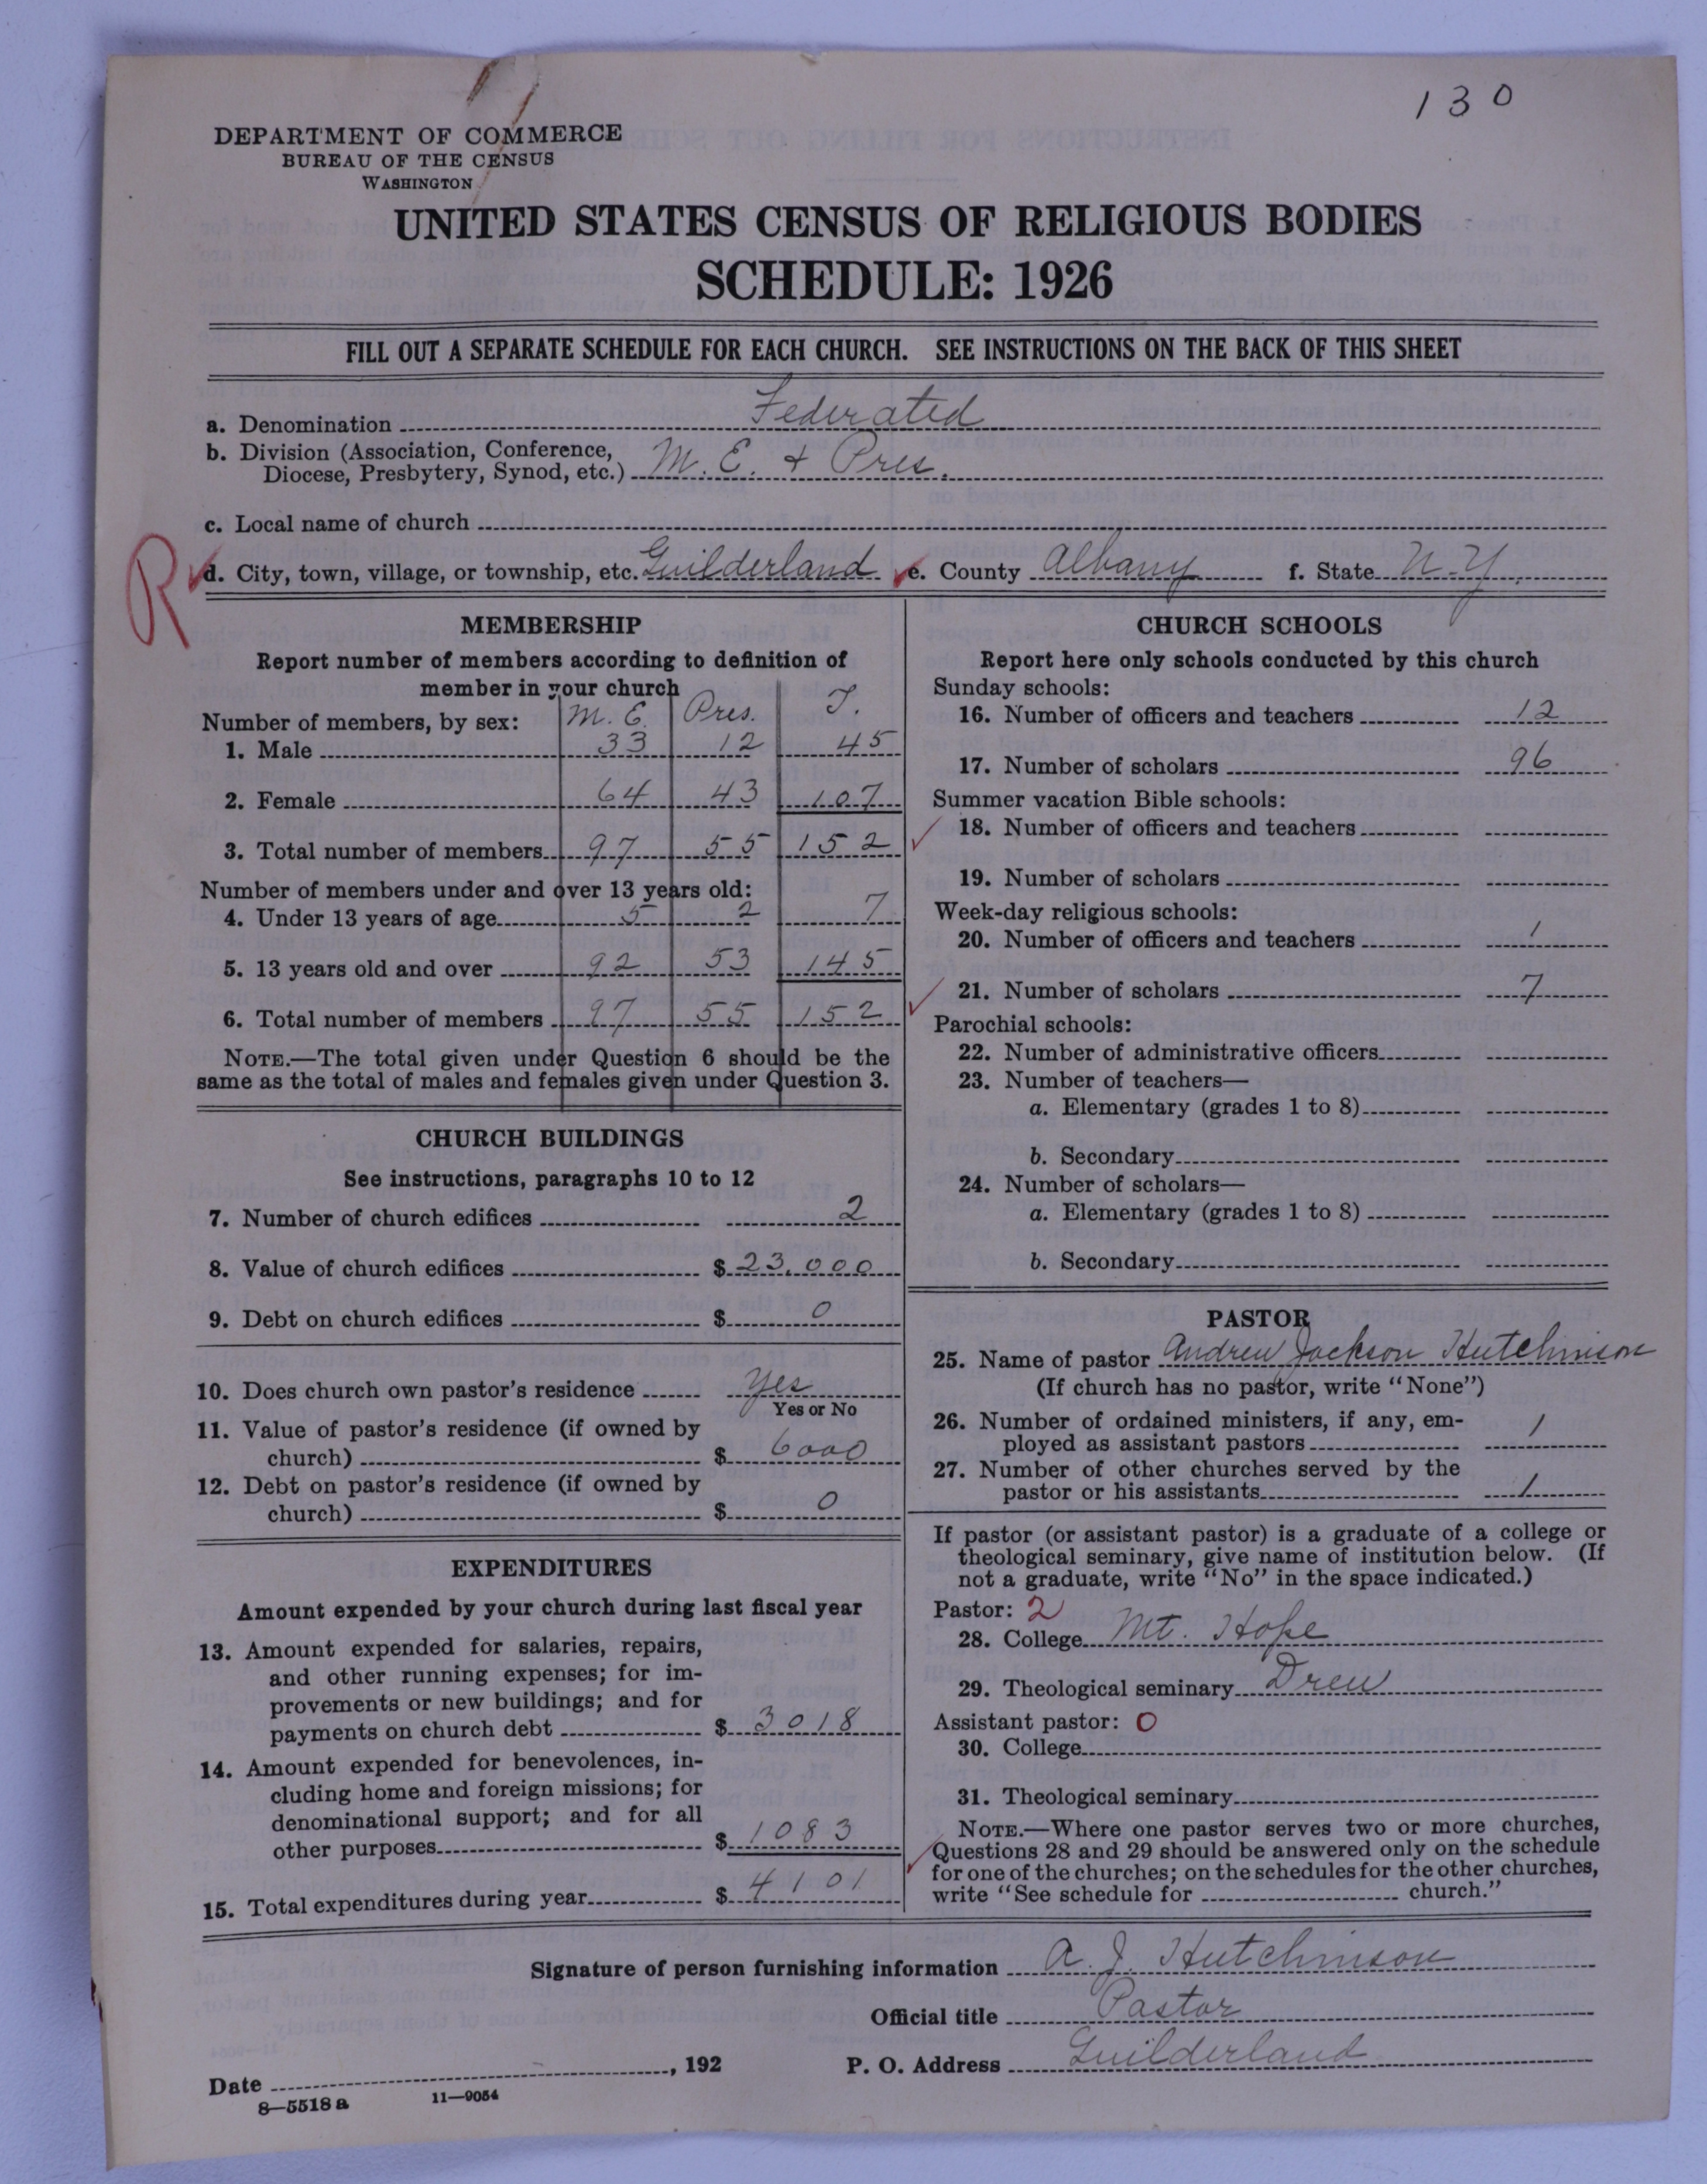 130
DEPARTMENT OF COMMERCE
BUREAU OF THE CENSUS
WASHINGTON
UNITED STATES CENSUS OF RELIGIOUS BODIES
SCHEDULE: 1926
FILL OUT A SEPARATE SCHEDULE FOR EACH CHURCH. SEE INSTRUCTIONS ON THE BACK OF THIS SHEET
a. Denomination Federated
b. Division (Association, Conference,
Diocese, Presbytery, Synod, etc.) M. E. + Pres.
c. Local name of church
R
d. City, town, village, or township, etc. Guilderland e. County Albany f. State N.Y.
MEMBERSHIP
Report number of members according to definition of
member in your church
Number of members, by sex: M. E. Pres. T.
1. Male 33 12 45
2. Female 64 43 107
3. Total number of members 97 55 152
Number of members under and over 13 years old:
4. Under 13 years of age 5 2 7
5. 13 years old and over 92 53 145
6. Total number of members 97 55 152
NOTE.—The total given under Question 6 should be the
same as the total of males and females given under Question 3.
CHURCH BUILDINGS
See instructions, paragraphs 10 to 12
7. Number of church edifices 2
8. Value of church edifices $ 23,000
9. Debt on church edifices $ 0
10. Does church own pastor's residence Yes
Yes or No
11. Value of pastor's residence (if owned by
church) $ 6000
12. Debt on pastor's residence (if owned by
church) $ 0
EXPENDITURES
Amount expended by your church during last fiscal year
13. Amount expended for salaries, repairs,
and other running expenses; for im-
provements or new buildings; and for
payments on church debt $ 3018
14. Amount expended for benevolences, in-
cluding home and foreign missions; for
denominational support; and for all
other purposes $ 1083
15. Total expenditures during year $ 4101
CHURCH SCHOOLS
Report here only schools conducted by this church
Sunday schools:
16. Number of officers and teachers 12
17. Number of scholars 96
Summer vacation Bible schools:
18. Number of officers and teachers
19. Number of scholars
Week-day religious schools:
20. Number of officers and teachers 1
21. Number of scholars 7
Parochial schools:
22. Number of administrative officers
23. Number of teachers—
a. Elementary (grades 1 to 8)
b. Secondary
24. Number of scholars—
a. Elementary (grades 1 to 8)
b. Secondary
PASTOR
25. Name of pastor Andrew Jackson Hutchinson
(If church has no pastor, write "None")
26. Number of ordained ministers, if any, em-
ployed as assistant pastors 1
27. Number of other churches served by the
pastor or his assistants 1
If pastor (or assistant pastor) is a graduate of a college or
theological seminary, give name of institution below. (If
not a graduate, write "No" in the space indicated.)
Pastor: 2
28. College Mt. Hope
29. Theological seminary Drew
Assistant pastor: 0
30. College
31. Theological seminary
NOTE.—Where one pastor serves two or more churches,
Questions 28 and 29 should be answered only on the schedule
for one of the churches; on the schedules for the other churches,
write "See schedule for church."
Signature of person furnishing information A. J. Hutchinson
Official title Pastor
Date , 192 P. O. Address Guilderland
8—5518 a 11—9054